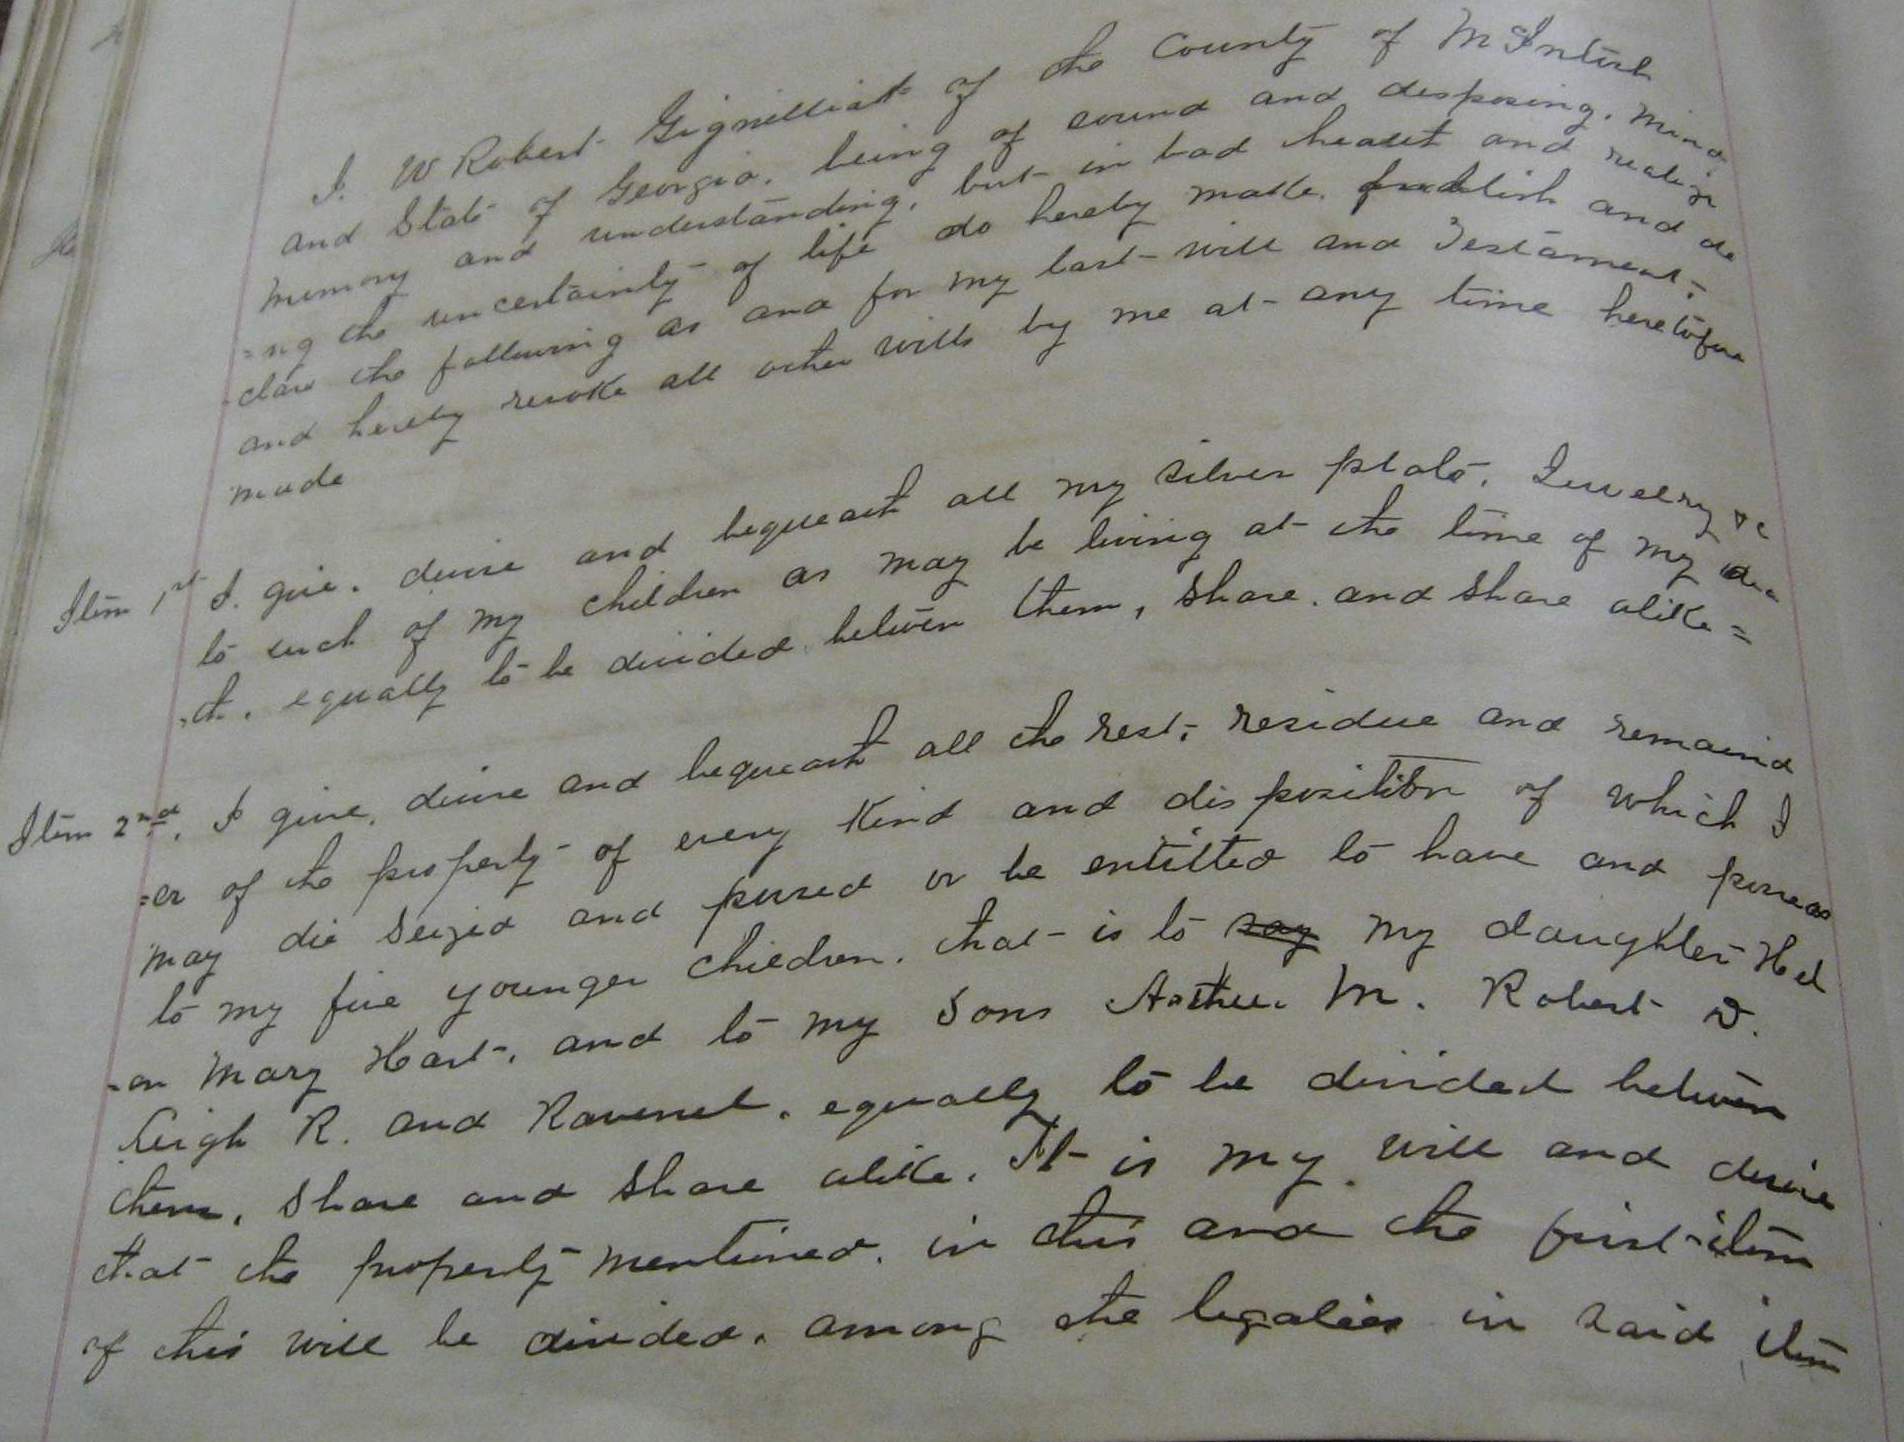 I. W Robert Gignilliat of the County of McIntosh
and State of Georgia. being of sound and disposing. mind
memory and understanding, but in bad health and realiz
=ng the uncertainty of life do hereby make. publish and de
-clare the following as and for my last will and Testament.
and hereby revoke all other wills by me at any time heretofore
made
Item 1st I. give. devise and bequeath all my silver plate. Jewelry &c
to such of my children as may be living at the time of my dea
=th. equally to be divided between them, share. and share alike =
Item 2nd. I give, devise and bequeath all the rest, residue and remaind
=er of the property of every Kind and disposition of which I
may die seized and posessed or be entitled to have and possess
to my five younger children. that is to say my daughter Hel
-en Mary Hart, and to my sons Arthur M. Robert D.
Leigh R. and Ravenel. equally to be divided between
them, share and share alike. It is my will and desire
that the property mentioned. in this and the first item
of this will be divided. among the legatees in said item